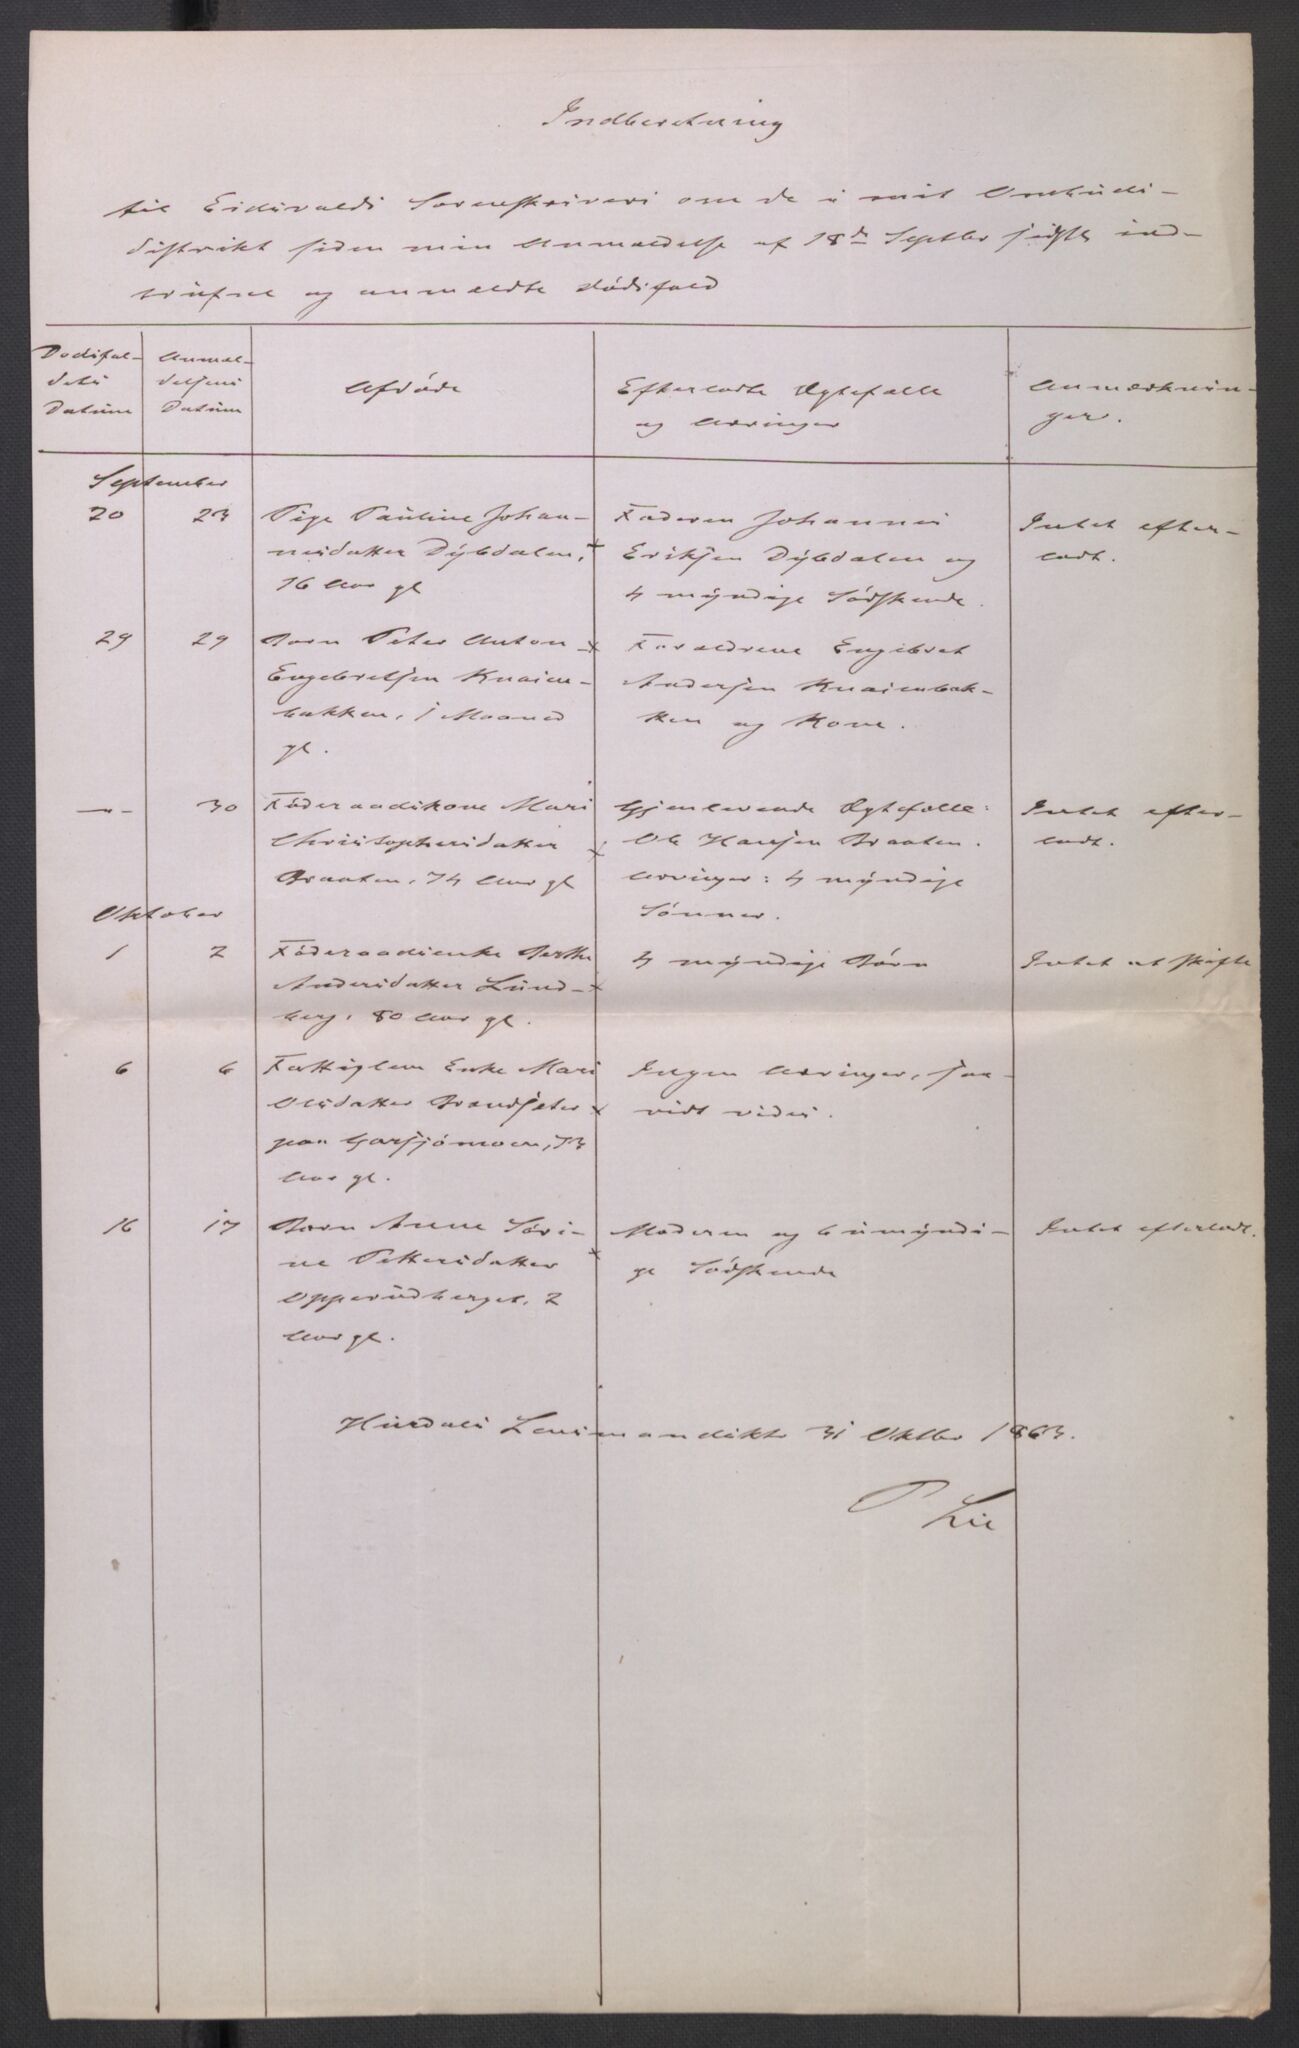 Indberetning
til Eidsvolds Sorenskriveri om de i mit Ombuds-
distrikt siden min Anmeldelse af 18de Septbr sidste ind-
trufne og anmeldte Dødsfald
Dødsfal-
dets
Datum
Anmel-
delsens
Datum
Afdøde
Efterladte Ægtefælle
og Arvinger
Anmærknin-
ger.
September
20 23 Pige Pauline Johan-
nesdatter Dybdalen,
16 Aar gl
Faderen Johannes
Eriksen Dybdalen og
4 myndige Sødskende.
Intet efter-
ladt.
29 29 Barn Peter Anton
Engebretsen Knaien-
bakken, 1 Maaned
gl.
Forældrene Engebret
Andersen Knaienbak-
ken og Kone.
— 30 Föderaadskone Mari
Christophersdatter
Braaten, 74 Aar gl
Gjenlevende Ægtefælle:
Ole Hansen Braaten.
Arvinger: 4 myndige
Sønner.
Intet efter-
ladt.
Oktober
1 2 Föderaadsenke Berthe
Andersdatter Lund-
berg, 80 Aar gl.
4 myndige Børn
Intet at skifte
6 6 Fattiglem Enke Mari
Olsdatter Brandsæter
paa Garsjömoen, 73
Aar gl.
Ingen Arvinger, saa-
vidt vides.
16 17 Barn Anne Søri-
ne Pettersdatter
Opperudberget, 2
Aar gl.
Moderen og 6 umyndi-
ge Sødskende
Intet efterladt.
Hurdals Lensmandskt 31 Oktbr 1863.
P Lie